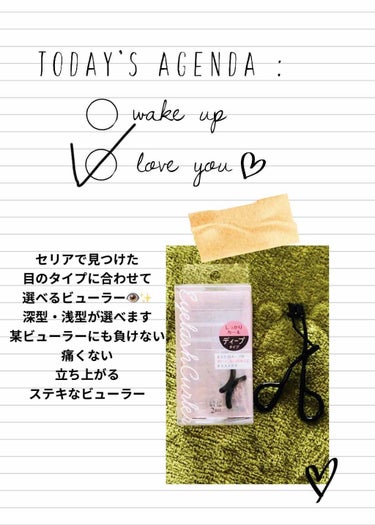 TODAY'S AGENDA :
wake up
love you
セリアで見つけた
目のタイプに合わせて
選べるビューラー👁️✨
深型・浅型が選べます
某ビューラーにも負けない
痛くない
立ち上がる
ステキなビューラー
Eyelash Curler
しっかり
カール
ディープ
タイプ